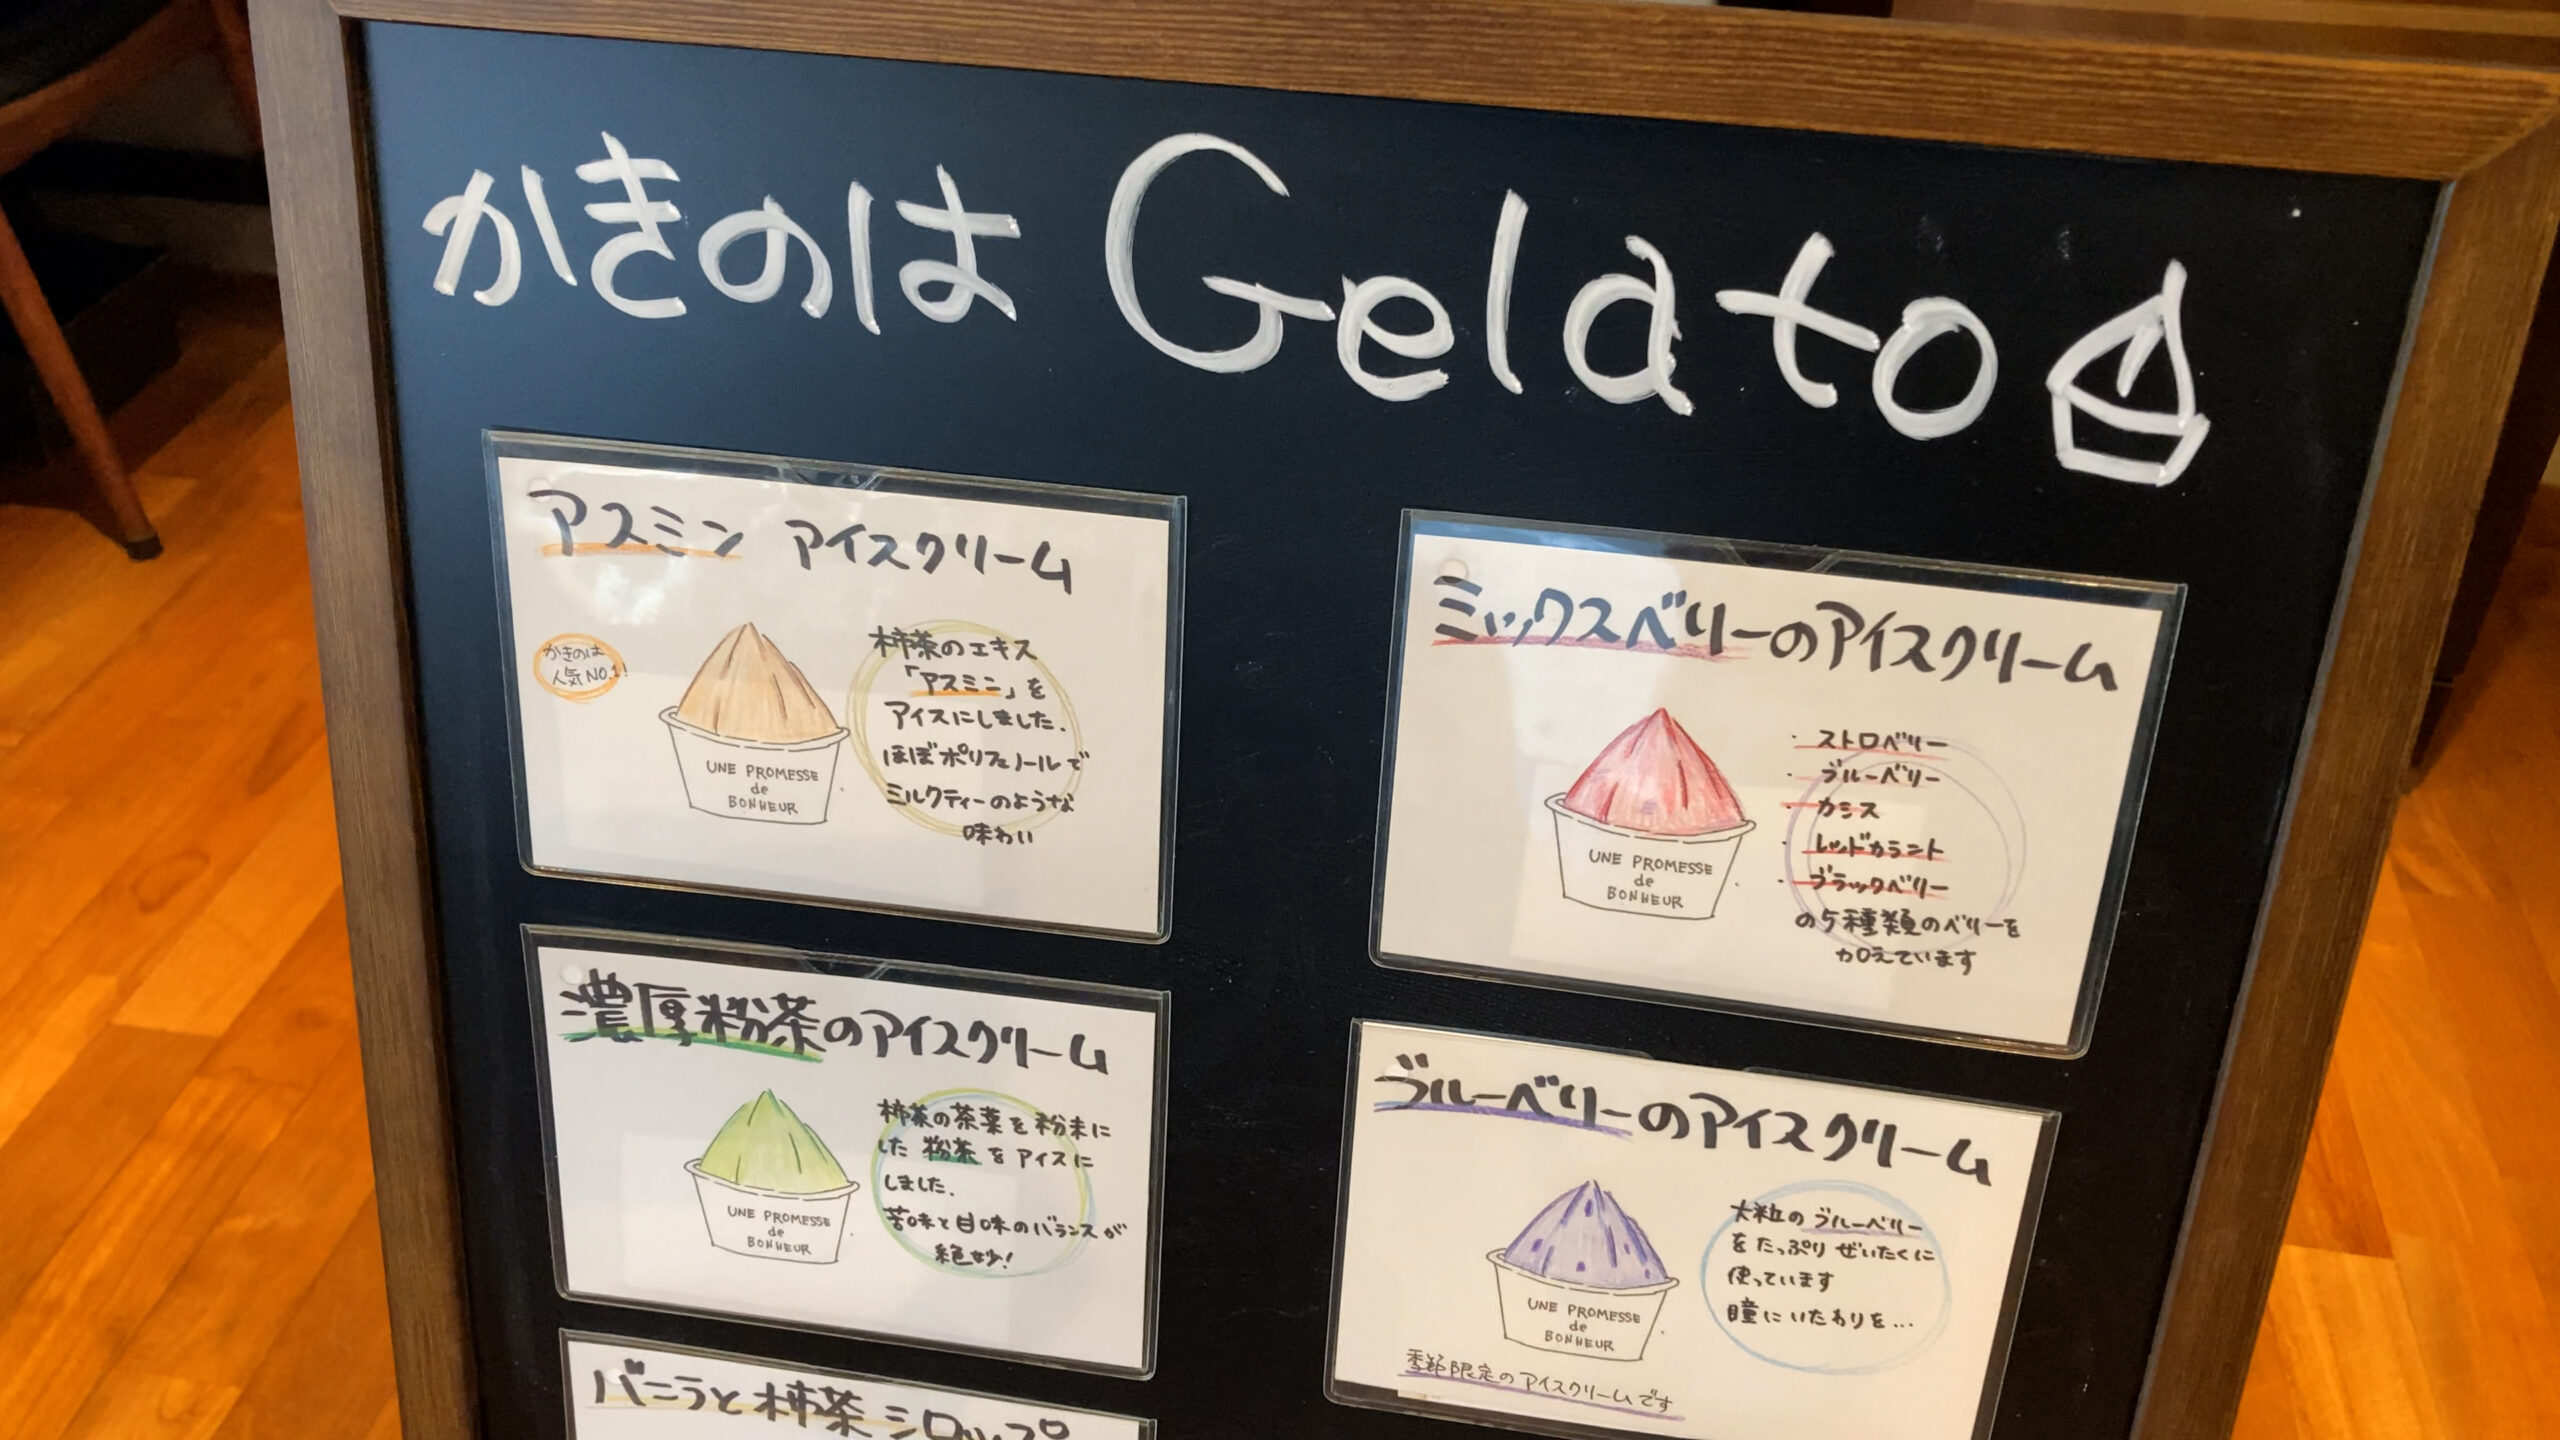 かきのは Gelato
アスミン アイスクリーム
かきのは
人気NO.1!
UNE PROMESSE
de
BONHEUR
柿茶のエキス
「アスミン」を
アイスにしました.
ほぼポリフェノールで
ミルクティーのような
味わい
ミックスベリーのアイスクリーム
UNE PROMESSE
de
BONHEUR
・ストロベリー
・ブルーベリー
・カシス
・レッドカラント
・ブラックベリー
の5種類のベリーを
加えています
濃厚粉茶のアイスクリーム
UNE PROMESSE
de
BONHEUR
柿茶の茶葉を粉末に
した 粉茶 をアイスに
しました.
苦味と甘味のバランスが
絶妙!
ブルーベリーのアイスクリーム
UNE PROMESSE
de
BONHEUR
大粒のブルーベリー
をたっぷりぜいたくに
使っています
瞳にいたわりを…
季節限定のアイスクリームです
バニラと柿茶シロップ